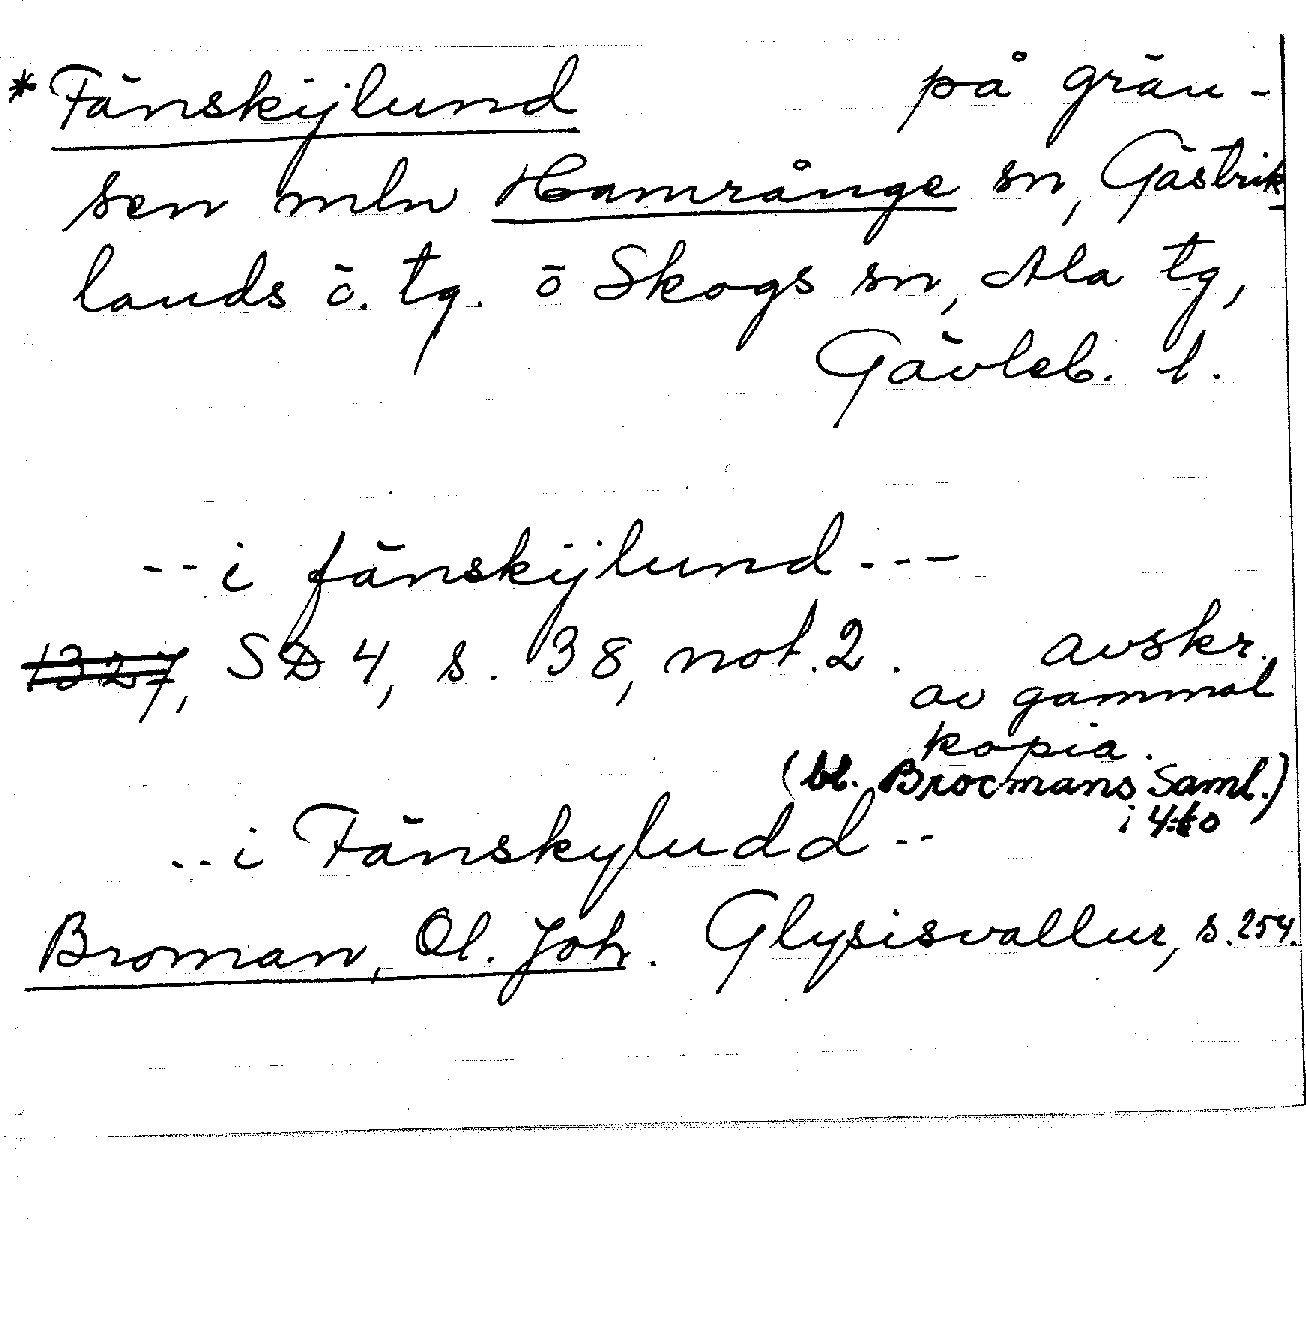 *Fänskijlund på grän-
sen mln Hamrånge sn, Gästrik-
lands ö. tg. ö Skogs sn, Ala tg,
Gävleb. l.
--i fänskijlund---
1327, SD 4, s. 38, not. 2. avskr.
av gammal
kopia.
(bl. Brocmans Saml.)
i 4:to
--i Fänskyludd--
Broman, Ol. Joh. Glysisvallur, s. 254.